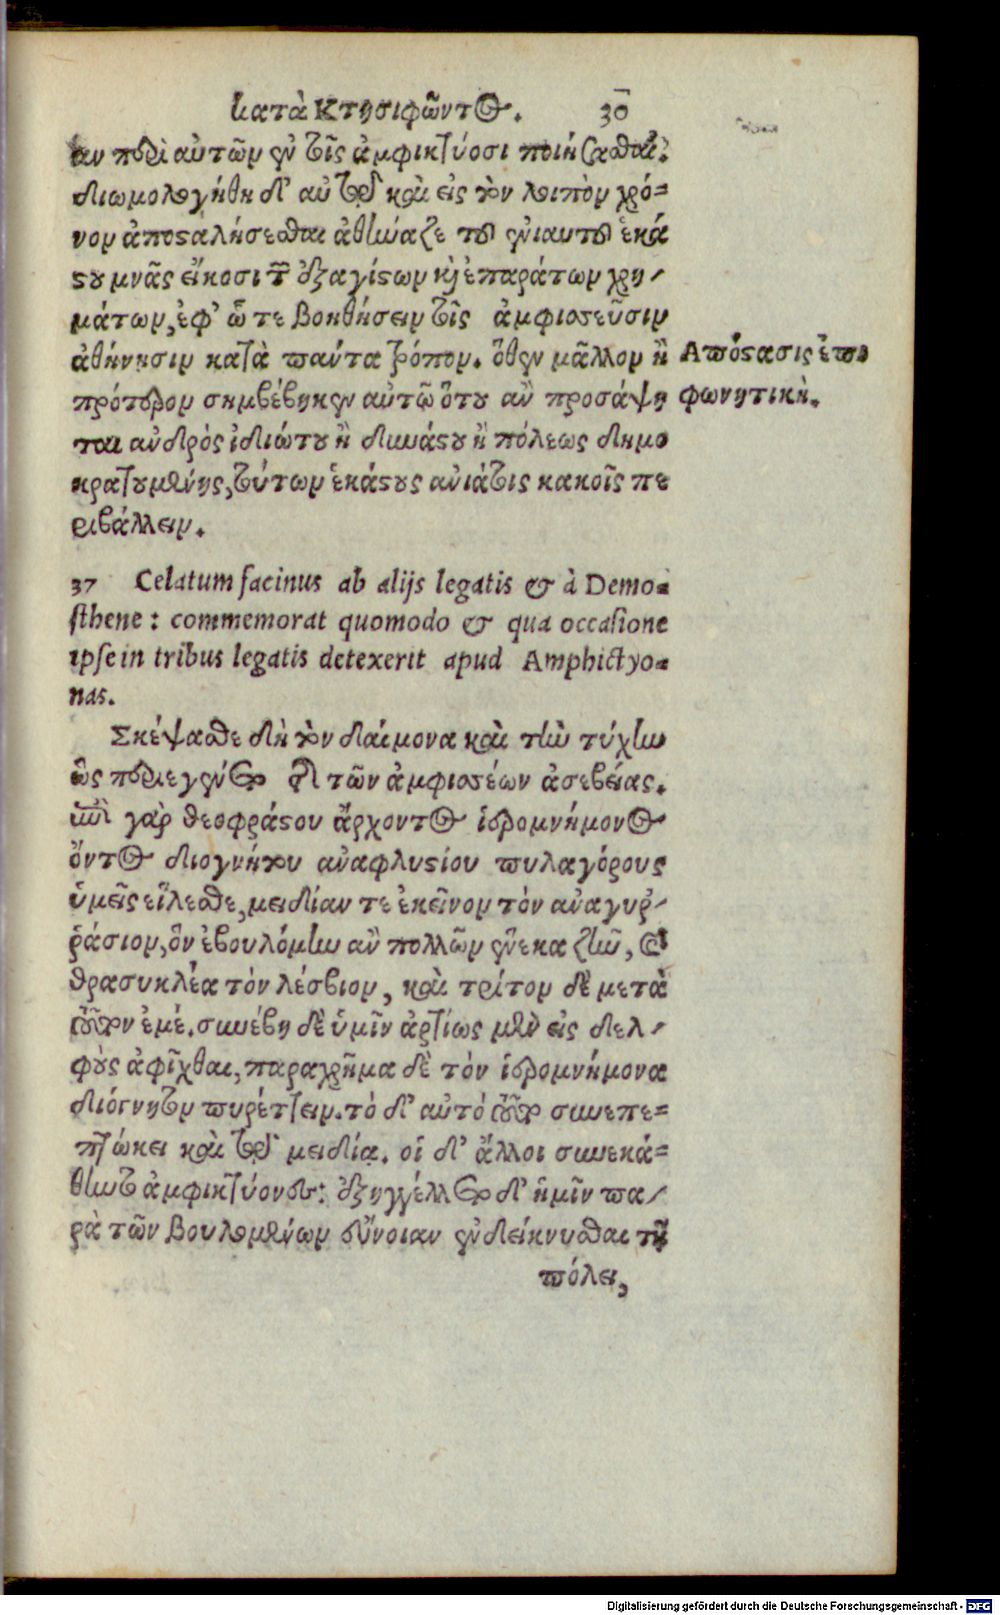 κατὰ Κτησιφῶντος. 30
αν περὶ αὐτῶν ἐν τοῖς ἀμφικτύοσι ποιήσασθαι.
διωμολογήθη δ' αὐτῷ καὶ εἰς τὸν λοιπὸν χρό=
νον ἀποσταλήσεσθαι ἀθήναζε τοῦ ἐνιαυτοῦ ἑκά
στου μνᾶς εἴκοσι τῶν ἐξαγίστων καὶ ἐπαράτων χρη-
μάτων, ἐφ' ᾧ τε βοηθήσειν τοῖς ἀμφισσεῦσιν
ἀθήνησιν κατὰ πάντα τρόπον. ὅθεν μᾶλλον ἢ
πρότερον συμβέβηκεν αὐτῷ ὅτου ἂν προσάψη
ται ἀνδρὸς ἰδιώτου ἢ δυνάστου ἢ πόλεως δημο
κρατουμένης, τούτων ἑκάστους ἀνιάτοις κακοῖς πε
ριβάλλειν.
Απόστασις ἐπι
φωνητική.
37 Celatum facinus ab alijs legatis & à Demo=
sthene: commemorat quomodo & qua occasione
ipse in tribus legatis detexerit apud Amphictyo=
nas.
Σκέψασθε δὴ τὸν δαίμονα καὶ τὴν τύχην
ὡς περιεγένετο τῆς τῶν ἀμφισσέων ἀσεβείας.
ἐπὶ γὰρ θεοφράστου ἄρχοντος ἱερομνήμονος
ὄντος διογνήτου ἀναφλυστίου πυλαγόρους
ὑμεῖς εἵλεσθε, μειδίαν τε ἐκεῖνον τὸν ἀναγυρ-
ράσιον, ὃν ἐβουλόμην ἂν πολλῶν ἕνεκα ζῆν, καὶ
θρασυκλέα τὸν λέσβιον, καὶ τρίτον δὲ μετὰ
τούτων ἐμέ. συνέβη δὲ ὑμῖν ἀρτίως μὲν εἰς δελ-
φοὺς ἀφῖχθαι, παραχρῆμα δὲ τὸν ἱερομνήμονα
διόγνητον πυρέττειν. τὸ δ' αὐτὸ τοῦτο συνεπε=
πτώκει καὶ τῷ μειδίᾳ. οἱ δ' ἄλλοι συνεκά=
θηντο ἀμφικτύονες: ἐξηγγέλλετο δ' ἡμῖν πα-
ρὰ τῶν βουλομένων εὔνοιαν ἐνδείκνυσθαι τῇ
πόλει,
Digitalisierung gefördert durch die Deutsche Forschungsgemeinschaft - DFG